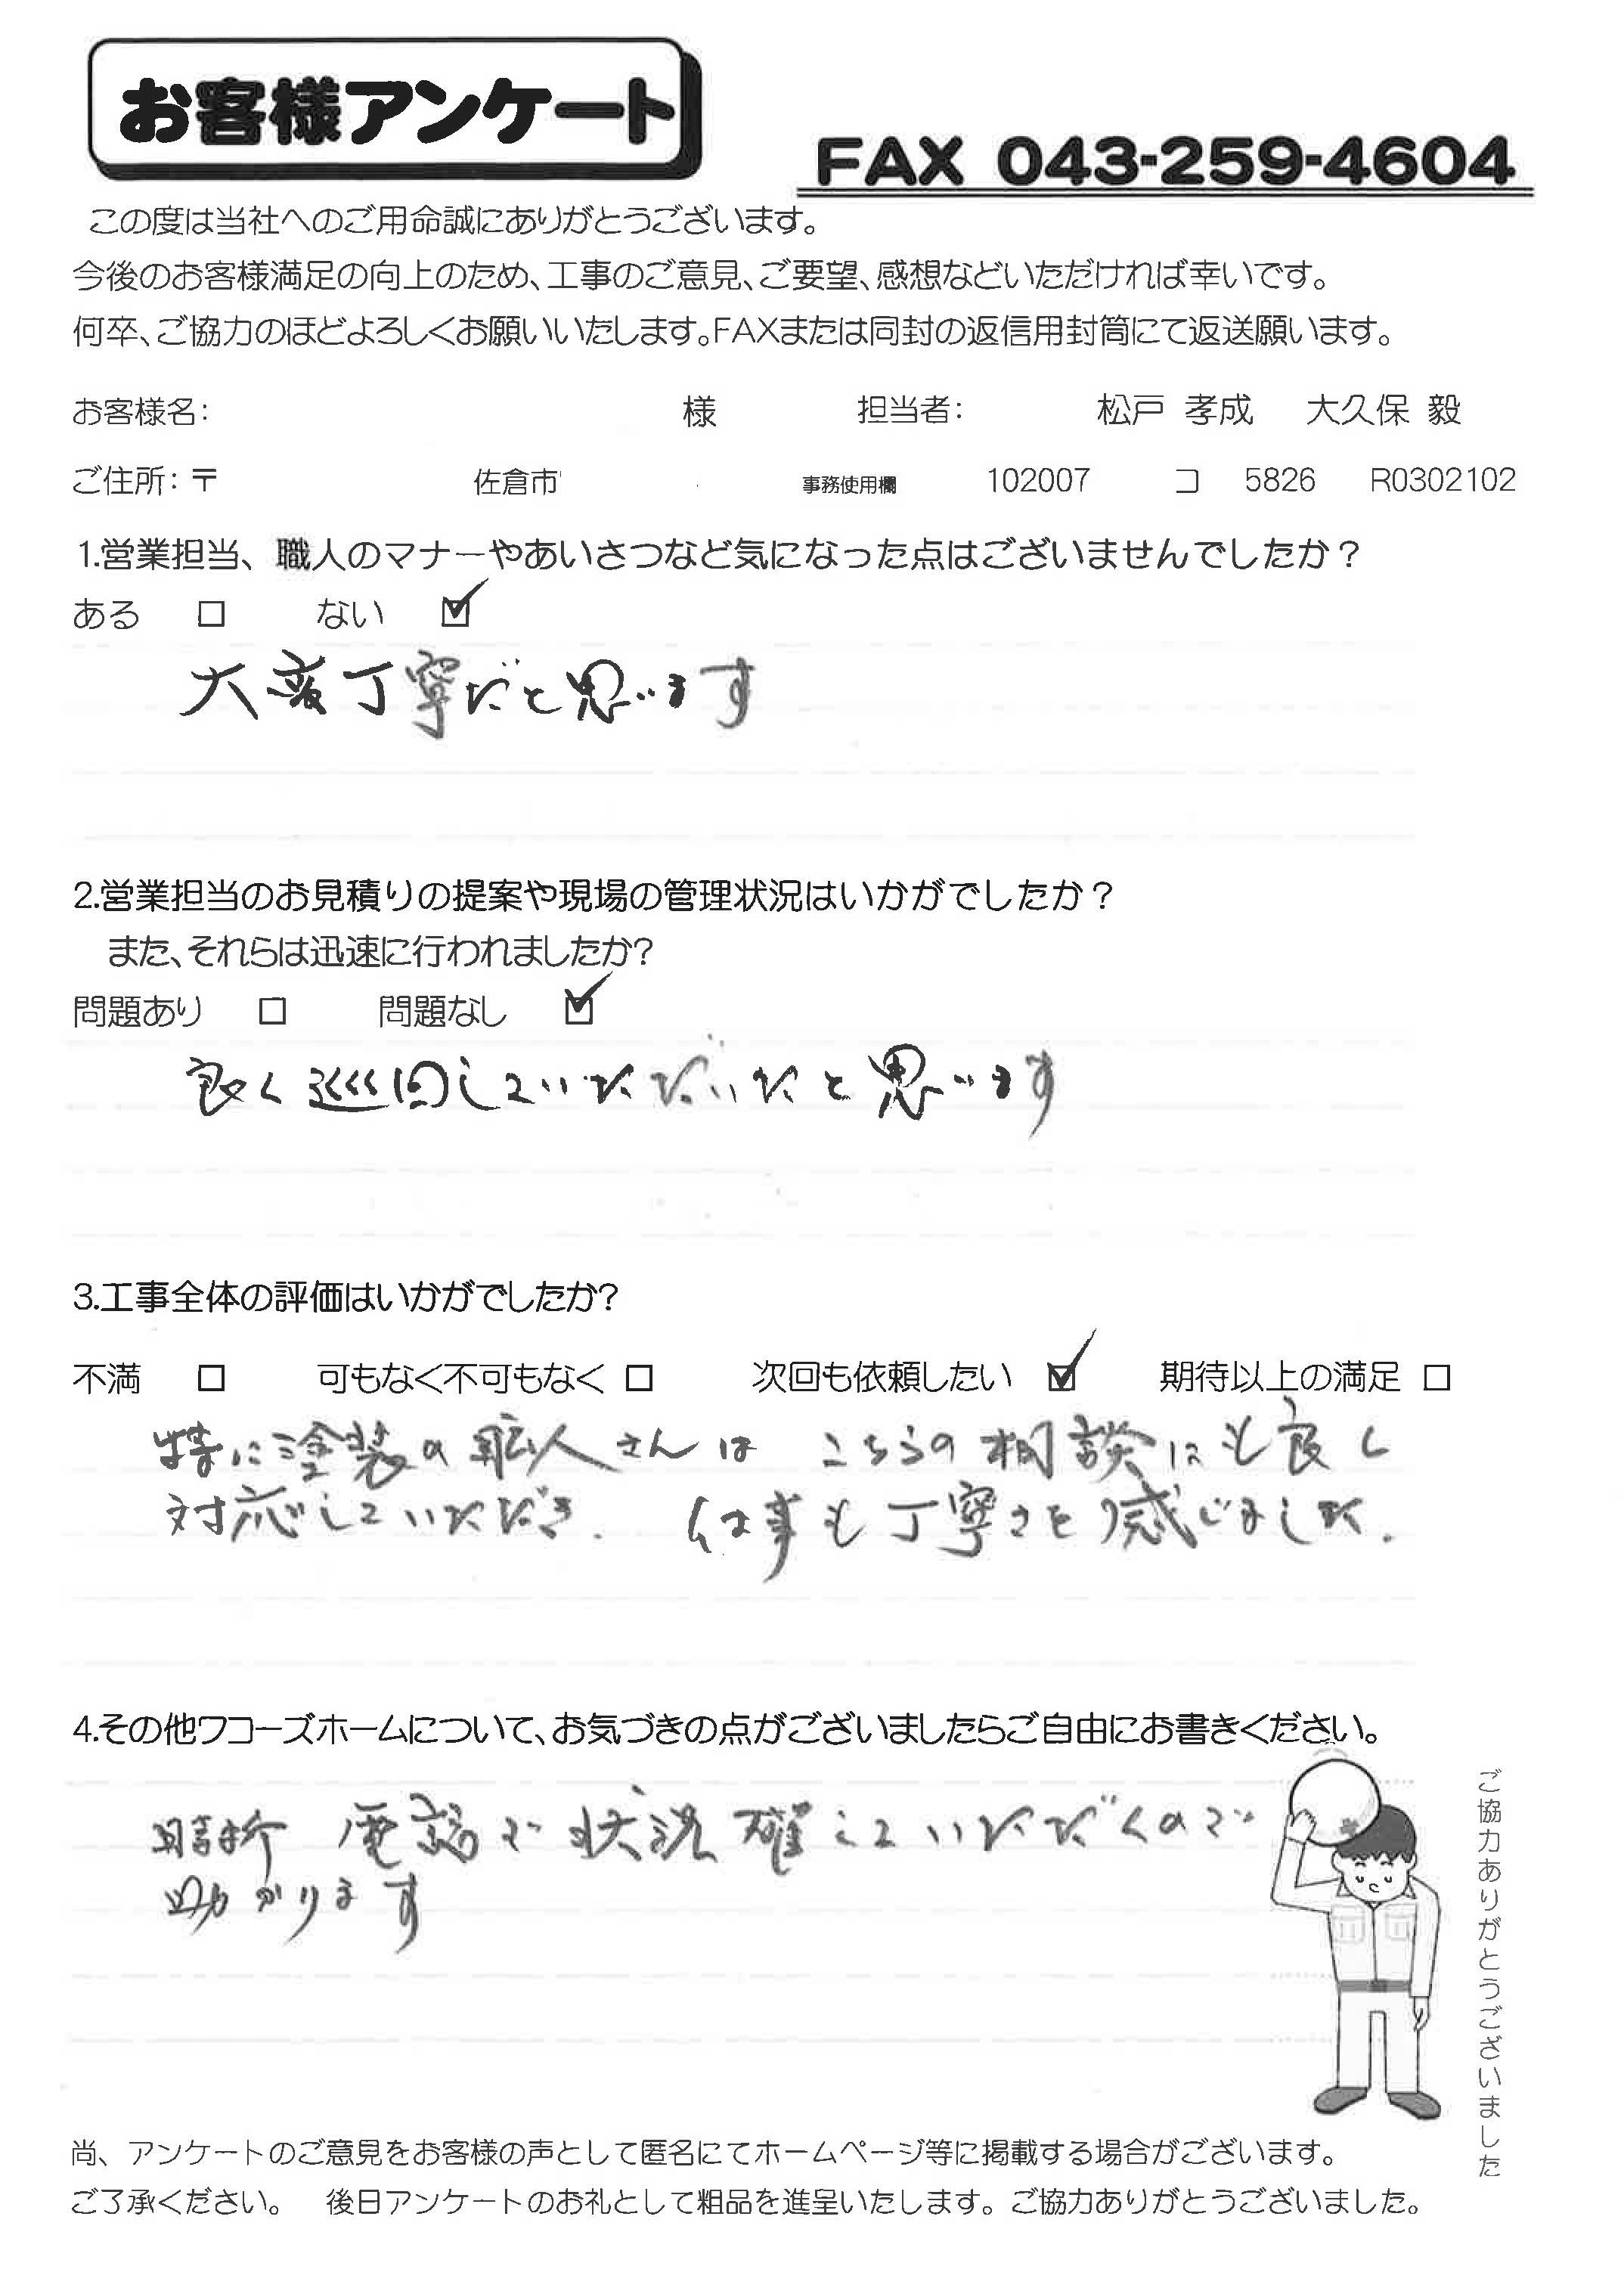 お客様アンケート
FAX 043-259-4604
この度は当社へのご用命誠にありがとうございます。
今後のお客様満足の向上のため、工事のご意見、ご要望、感想などいただければ幸いです。
何卒、ご協力のほどよろしくお願いいたします。FAXまたは同封の返信用封筒にて返送願います。
お客様名： 様 担当者： 松戸 孝成 大久保 毅
ご住所：〒 佐倉市 事務使用欄 102007 コ 5826 R0302102
1.営業担当、職人のマナーやあいさつなど気になった点はございませんでしたか？
ある □ ない ☑
大変丁寧だと思います
2.営業担当のお見積りの提案や現場の管理状況はいかがでしたか？
また、それらは迅速に行われましたか?
問題あり □ 問題なし ☑
良く巡回していただいたと思います
3.工事全体の評価はいかがでしたか?
不満 □ 可もなく不可もなく □ 次回も依頼したい ☑ 期待以上の満足 □
特に塗装の職人さんは こちらの相談にも良く
対応していただき. 仕事も丁寧さを感じました.
4.その他ワコーズホームについて、お気づきの点がございましたらご自由にお書きください。
時折 電話で状況確認していただくので
助かります
ご協力ありがとうございました
尚、アンケートのご意見をお客様の声として匿名にてホームページ等に掲載する場合がございます。
ご了承ください。 後日アンケートのお礼として粗品を進呈いたします。ご協力ありがとうございました。